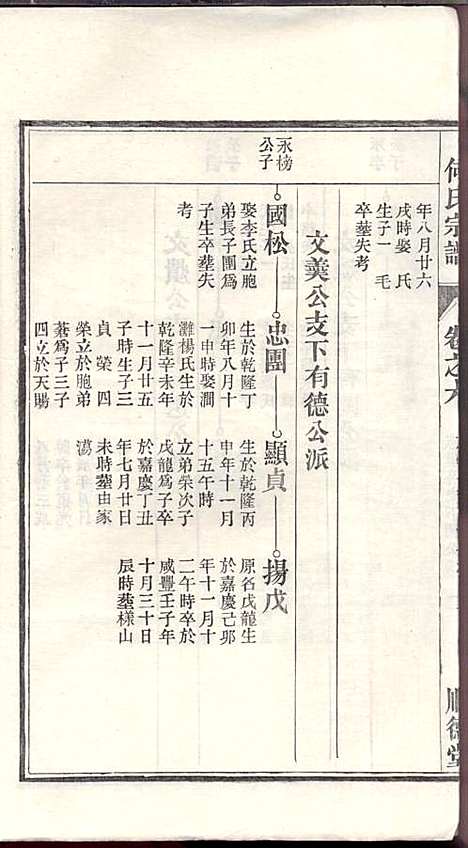 何氏宗譜
卷之九
順德堂
年八月廿六
戌時娶 氏
生子一 毛
卒塟失考
文美公支下有德公派
永榜
公子
國松
娶李氏立胞
弟長子團爲
子生卒塟失
考
忠團
生於乾隆丁
卯年八月十
一申時娶澗
灘楊氏生於
乾隆辛未年
十一月廿五
子時生子三
貞 榮 四
榮立於胞弟
蓁爲子三子
四立於天賜
顯貞
生於乾隆丙
申年十一月
十五午時
立弟榮次子
戊龍爲子卒
於嘉慶丁丑
年七月廿日
未時塟由家
灣
揚戊
原名戊龍生
於嘉慶己卯
年十一月十
二午時卒於
咸豐壬子年
十月三十日
辰時塟樣山